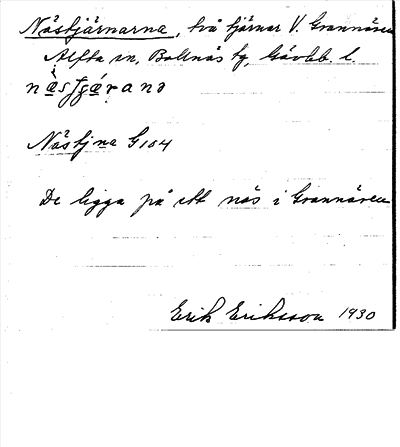 Nästjärnarna, två tjärnar V. Grannäsen
Alfta sn, Bollnäs tg, Gävleb. l.
Nästjna G 104
De ligga på ett näs i Grannäsen
Erik Eriksson 1930